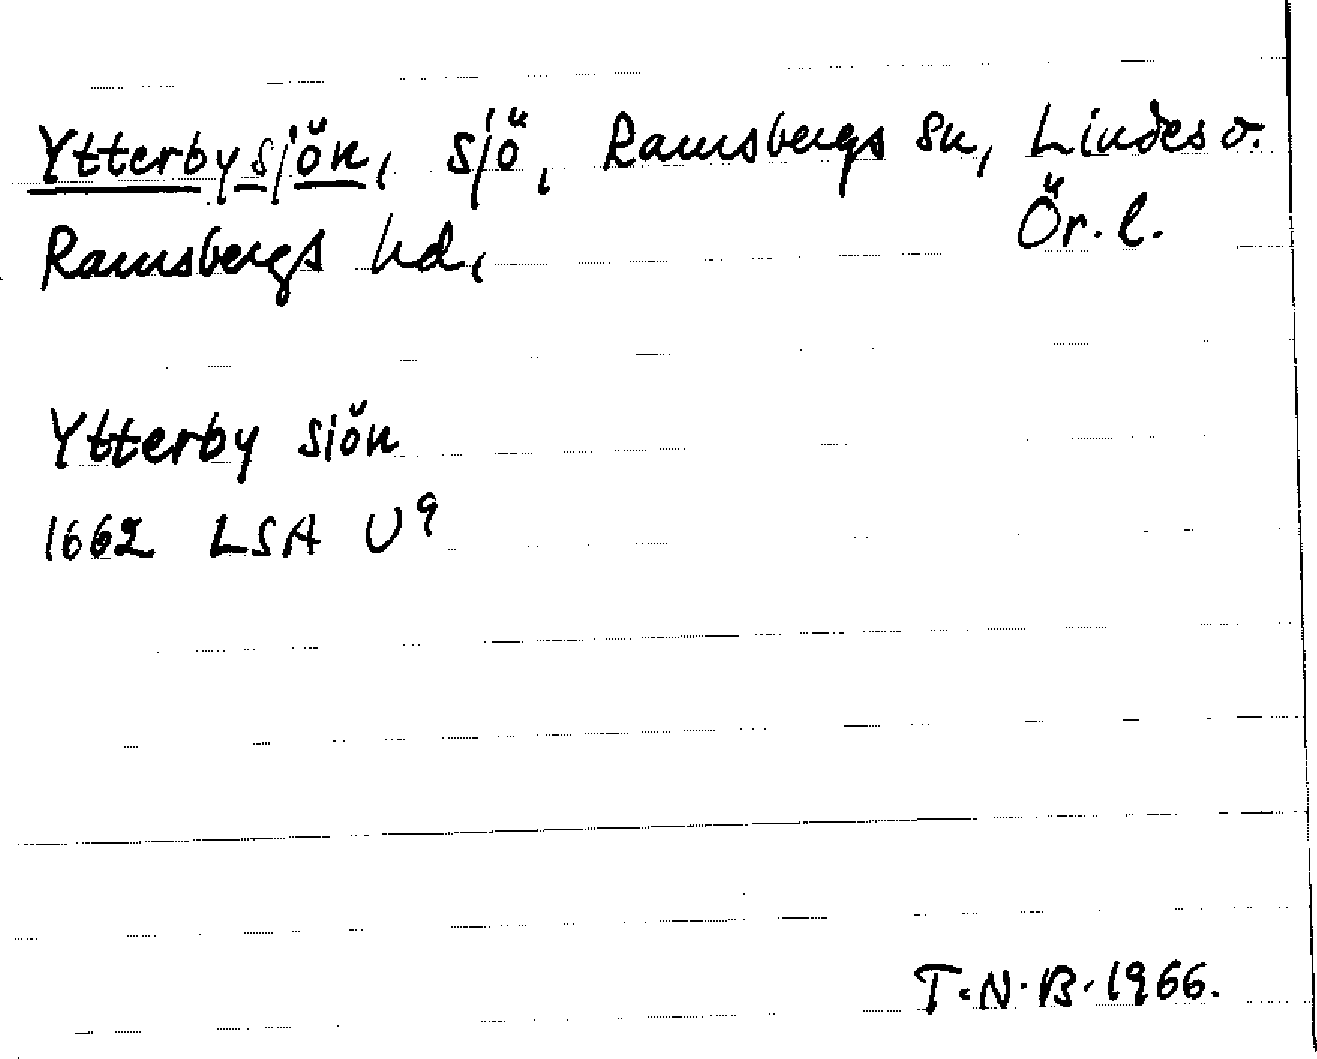 Ytterbysjön, sjö, Ramsbergs sn, Lindes o.
Ör. l.
Ramsbergs hd,
Ytterby siön
1662 LSA U9
T.N.B. 1966.